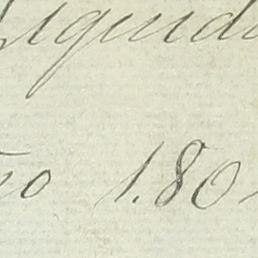 Liquida
ño 1.80